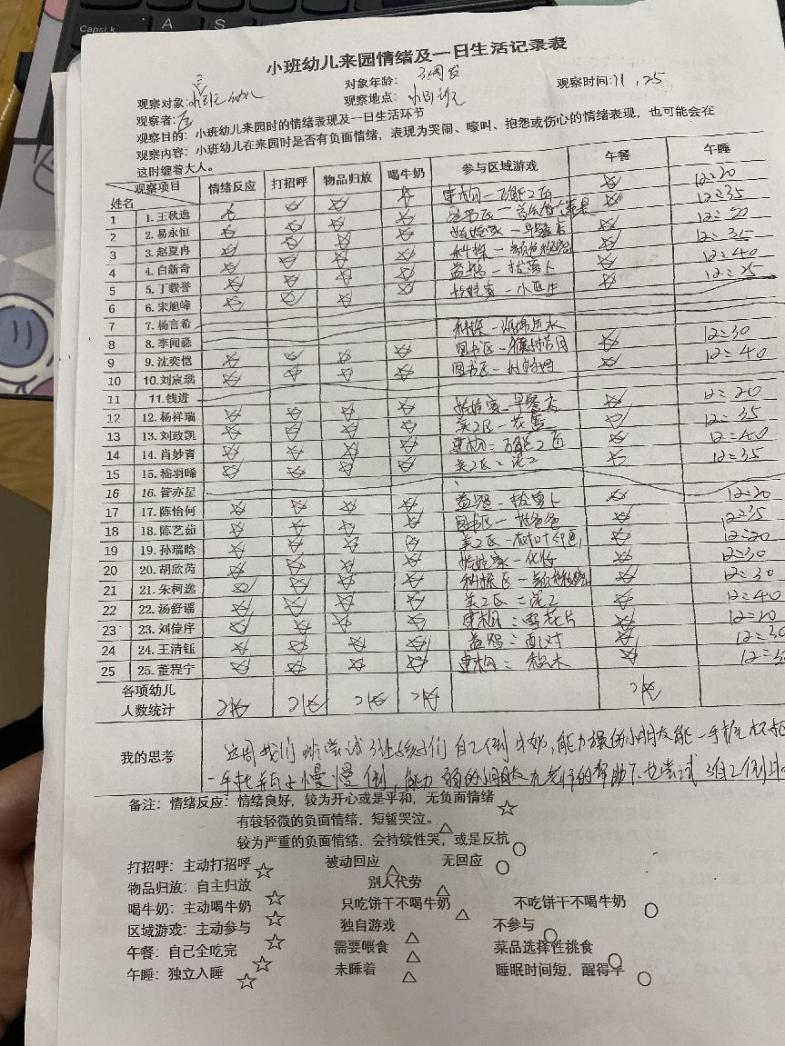 Caps Lk A S
小班幼儿来园情绪及一日生活记录表
观察对象: 小班 幼儿 对象年龄: 3周岁 观察时间: 11.25
观察者: 观察地点:
观察目的: 小班幼儿来园时的情绪表现及一日生活环节
观察内容: 小班幼儿在来园时是否有负面情绪, 表现为哭闹、嚎叫、抱怨或伤心的情绪表现, 也可能会在
这时缠着大人。
观察项目 情绪反应 打招呼 物品归放 喝牛奶 参与区域游戏 午餐 午睡
姓名
1 1. 王秋逸 ☆ ☆ ☆ ☆ ☆ 12:20
2 2. 易永恒 ☆ ☆ ☆ ☆ 图书区 ☆ 12:35
3 3. 赵夏冉 ☆ ☆ ☆ ☆ 娃娃家-早餐店 ☆ 12:20
4 4. 白新奇 ☆ ☆ ☆ ☆ 科探- ☆ 12:35
5 5. 丁载誉 ☆ ☆ ☆ ☆ 益智-拔萝卜 ☆ 12:40
6 6. 宋旭峰 ☆ ☆ ☆ ☆ 娃娃家-小医生 ☆ 12:25
7 7. 杨言希
8 8. 李闻蕤 科探-
9 9. 沈奕恺 ☆ ☆ ☆ ☆ 图书区- ☆ 12:30
10 10. 刘宸瑀 ☆ ☆ ☆ ☆ 图书区- ☆ 12:40
11 11. 钱进
12 12. 杨祥瑞 ☆ ☆ ☆ ☆ 娃娃家-早餐店 ☆ 12:20
13 13. 刘政凯 ☆ ☆ ☆ ☆ 美工区- ☆ 12:35
14 14. 肖妙青 ☆ ☆ ☆ ☆ 建构: ☆ 12:40
15 15. 嵇羽晞 ☆ ☆ ☆ ☆ 美工区: 泥工 ☆ 12:35
16 16. 管亦星
17 17. 陈怡何 ☆ ☆ ☆ ☆ 益智-拔萝卜 ☆ 12:20
18 18. 陈艺茹 ☆ ☆ ☆ ☆ 图书区- ☆ 12:35
19 19. 孙瑞晗 ☆ ☆ ☆ ☆ 美工区-树叶印画 ☆ 12:20
20 20. 胡欣芮 ☆ ☆ ☆ ☆ 娃娃家-化妆 ☆ 12:30
21 21. 朱柯逸 ☆ ☆ ☆ ☆ 科探区- ☆ 12:30
22 22. 汤舒谣 ☆ ☆ ☆ ☆ 美工区: 泥工 ☆ 12:40
23 23. 刘倢序 ☆ ☆ ☆ ☆ 建构: 雪花片 ☆ 12:20
24 24. 王清钰 ☆ ☆ ☆ ☆ 益智: 配对 ☆ 12:30
25 25. 董程宁 ☆ ☆ ☆ ☆ 建构: 积木 ☆
各项幼儿
人数统计 21☆ 21☆ 21☆ 21☆ 21☆
我的思考 这周我们 尝试了让孩子们自己倒牛奶, 能力强的小朋友能一手握杯
一手托 慢慢倒, 能力弱的小朋友在老师的帮助下也尝试了自己倒牛
备注: 情绪反应: 情绪良好, 较为开心或是平和, 无负面情绪 ☆
有较轻微的负面情绪, 短暂哭泣。 △
较为严重的负面情绪, 会持续性哭, 或是反抗 ○
打招呼: 主动打招呼 ☆ 被动回应 △ 无回应 ○
物品归放: 自主归放 ☆ 别人代劳 △
喝牛奶: 主动喝牛奶 ☆ 只吃饼干不喝牛奶 △ 不吃饼干不喝牛奶 ○
区域游戏: 主动参与 ☆ 独自游戏 △ 不参与 ○
午餐: 自己全吃完 ☆ 需要喂食 △ 菜品选择性挑食 ○
午睡: 独立入睡 ☆ 未睡着 △ 睡眠时间短, 醒得早 ○